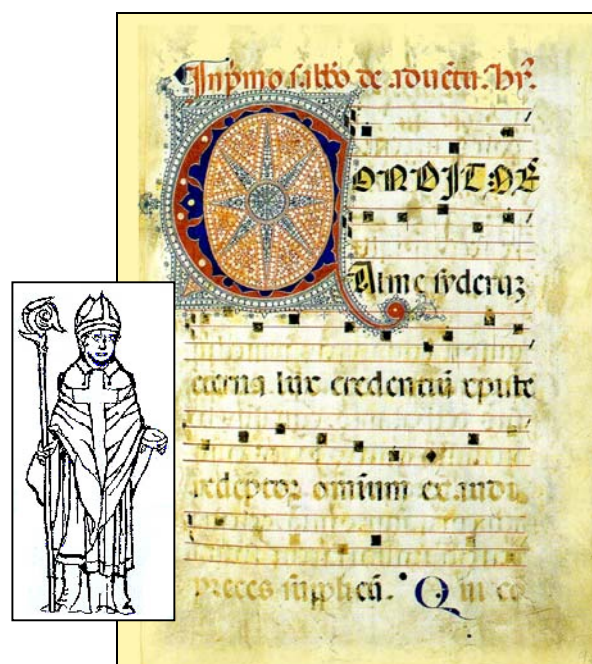 In pͥmo sabb̄o de aduētu. hȳ.
CONDITOR
Alme syderuʒ
eterna lux credentiū xp̄ite
redēptor omium exaudi
preces supplicū. Qui cō